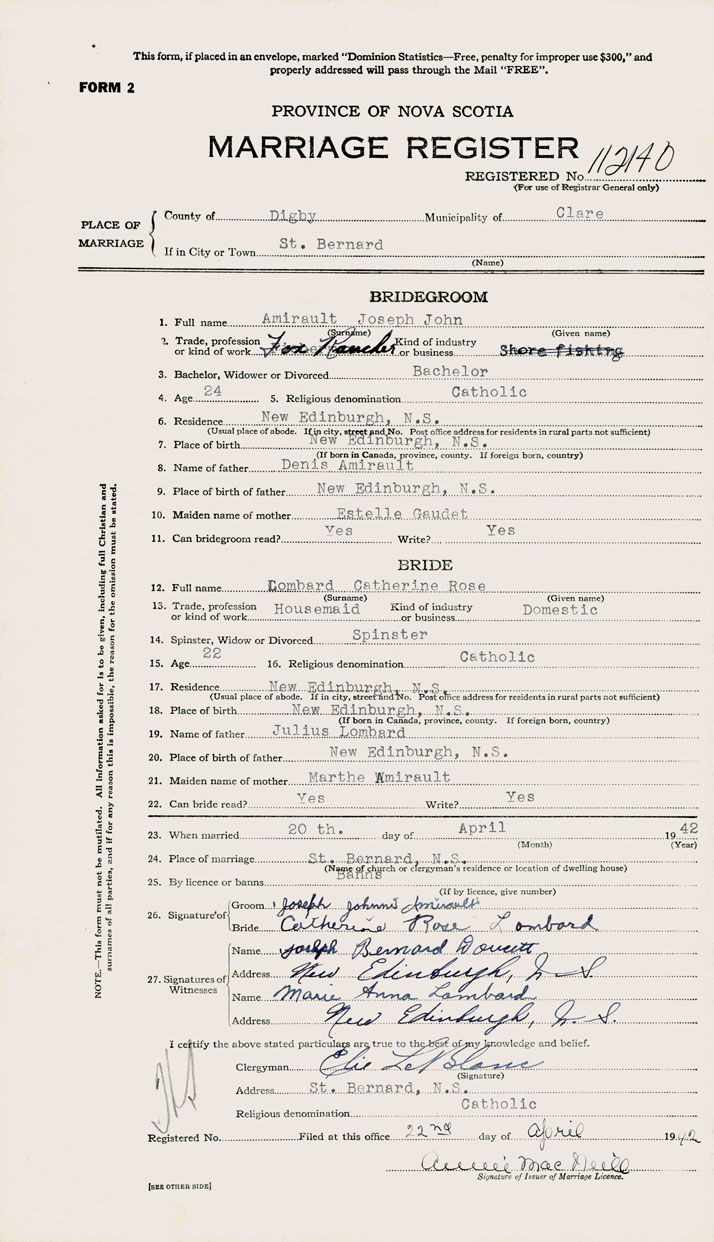 This form, if placed in an envelope, marked "Dominion Statistics—Free, penalty for improper use $300," and
properly addressed will pass through the Mail "FREE".
FORM 2
PROVINCE OF NOVA SCOTIA
MARRIAGE REGISTER
REGISTERED No. 112140
(For use of Registrar General only)
PLACE OF MARRIAGE
County of Digby Municipality of Clare
If in City or Town St. Bernard
(Name)
BRIDEGROOM
1. Full name Amirault Joseph John
(Surname) (Given name)
2. Trade, profession or kind of work Fox Rancher Kind of industry or business Shore fishing
3. Bachelor, Widower or Divorced Bachelor
4. Age 24 5. Religious denomination Catholic
6. Residence New Edinburgh, N.S.
(Usual place of abode. If in city, street and No. Post office address for residents in rural parts not sufficient)
7. Place of birth New Edinburgh, N.S.
(If born in Canada, province, county. If foreign born, country)
8. Name of father Denis Amirault
9. Place of birth of father New Edinburgh, N.S.
10. Maiden name of mother Estelle Gaudet
11. Can bridegroom read? Yes Write? Yes
BRIDE
12. Full name Lombard Catherine Rose
(Surname) (Given name)
13. Trade, profession or kind of work Housemaid Kind of industry or business Domestic
14. Spinster, Widow or Divorced Spinster
15. Age 22 16. Religious denomination Catholic
17. Residence New Edinburgh, N.S.
(Usual place of abode. If in city, street and No. Post office address for residents in rural parts not sufficient)
18. Place of birth New Edinburgh, N.S.
(If born in Canada, province, county. If foreign born, country)
19. Name of father Julius Lombard
20. Place of birth of father New Edinburgh, N.S.
21. Maiden name of mother Marthe Amirault
22. Can bride read? Yes Write? Yes
23. When married 20 th. day of April 1942
(Month) (Year)
24. Place of marriage St. Bernard, N.S.
(Name of church or clergyman's residence or location of dwelling house)
25. By licence or banns Banns
(If by licence, give number)
26. Signature of
Groom Joseph Johnni Amirault
Bride Catherine Rose Lombard
27. Signatures of Witnesses
Name Joseph Bernard Doucett
Address New Edinburgh, N.S.
Name Marie Anna Lombard
Address New Edinburgh, N.S.
I certify the above stated particulars are true to the best of my knowledge and belief.
Clergyman Elie LeBlanc
(Signature)
Address St. Bernard, N.S.
Religious denomination Catholic
Registered No. Filed at this office 22nd day of April 1942
Annie MacNeill
Signature of Issuer of Marriage Licence.
[SEE OTHER SIDE]
NOTE.—This form must not be mutilated. All information asked for is to be given, including full Christian and
surnames of all parties, and if for any reason this is impossible, the reason for the omission must be stated.